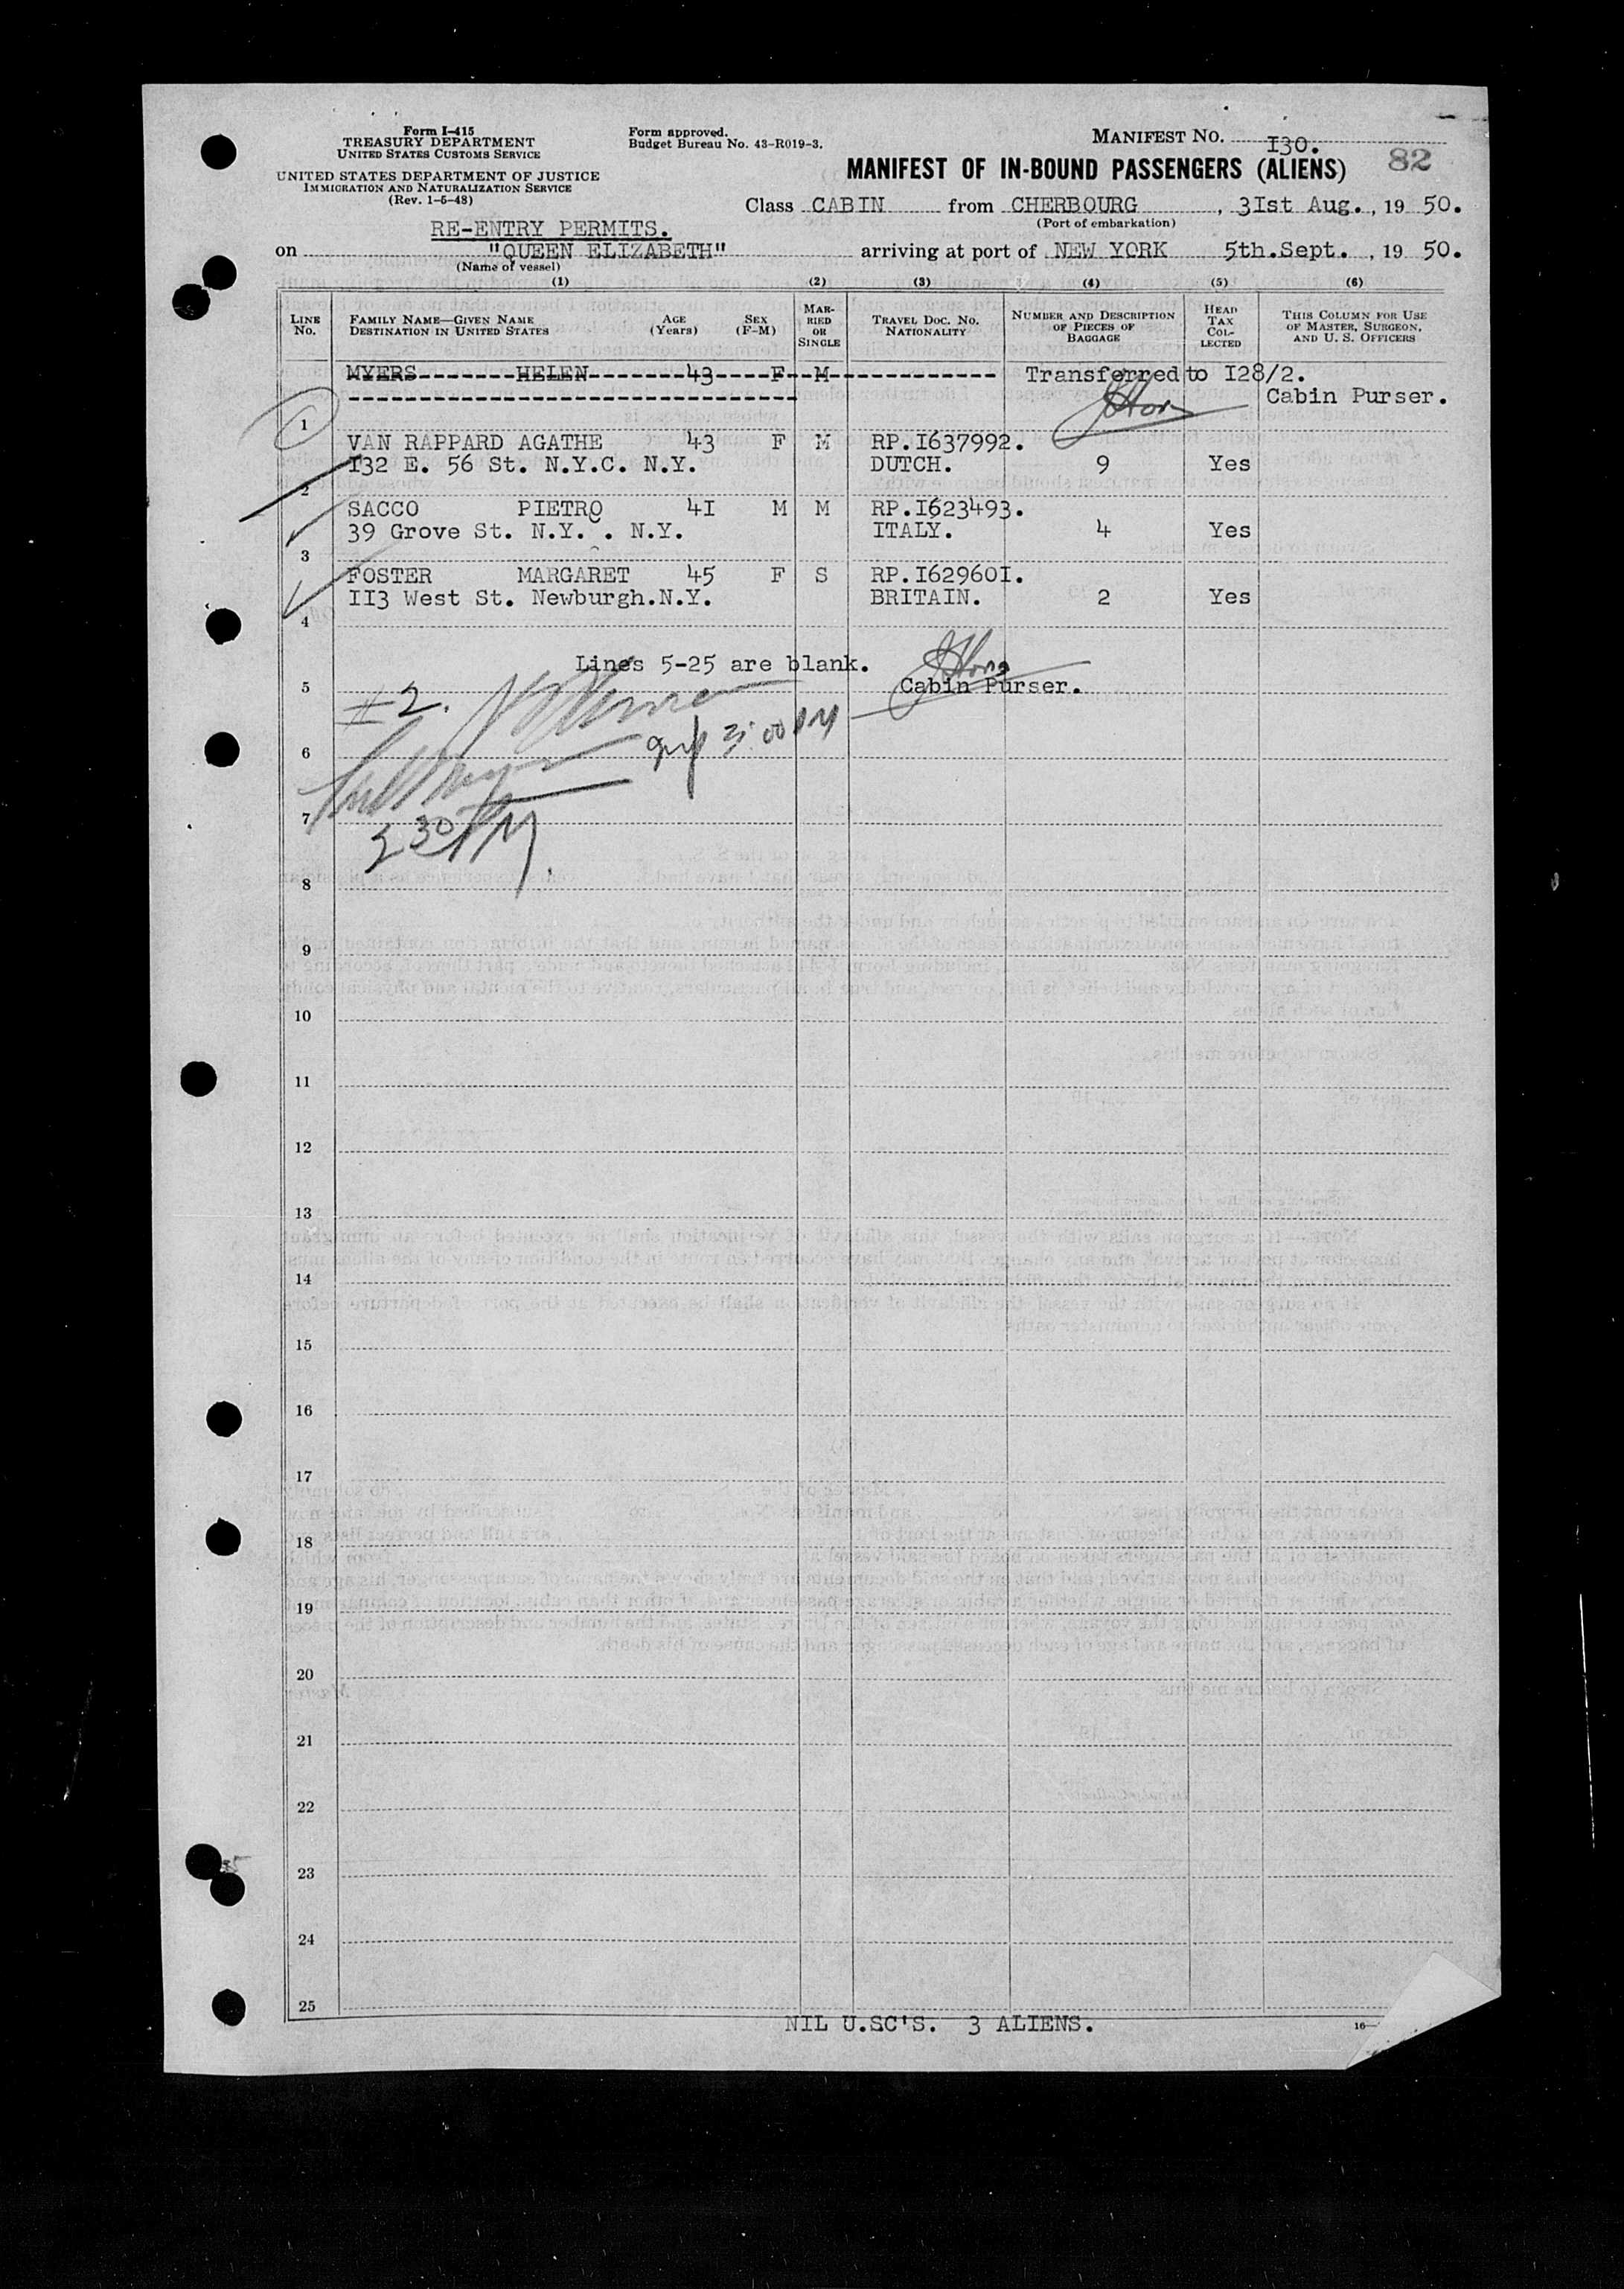 Form I-415
TREASURY DEPARTMENT
UNITED STATES CUSTOMS SERVICE
UNITED STATES DEPARTMENT OF JUSTICE
IMMIGRATION AND NATURALIZATION SERVICE
(Rev. 1-5-48)
Form approved.
Budget Bureau No. 43-R019-3.
MANIFEST NO. I30.
82
MANIFEST OF IN-BOUND PASSENGERS (ALIENS)
Class CABIN from CHERBOURG , 3Ist Aug. , 19 50.
(Port of embarkation)
RE-ENTRY PERMITS.
on "QUEEN ELIZABETH" arriving at port of NEW YORK 5th.Sept. , 19 50.
(Name of vessel)
(1) (2) (3) (4) (5) (6)
LINE No. FAMILY NAME—GIVEN NAME DESTINATION IN UNITED STATES AGE (Years) SEX (F-M) MARRIED OR SINGLE TRAVEL DOC. NO. NATIONALITY NUMBER AND DESCRIPTION OF PIECES OF BAGGAGE HEAD TAX COLLECTED THIS COLUMN FOR USE OF MASTER, SURGEON, AND U. S. OFFICERS
MYERS-------HELEN-------43----F--M------------ Transferred to I28/2.
Cabin Purser.
1
VAN RAPPARD AGATHE 43 F M RP.I637992.
I32 E. 56 St. N.Y.C. N.Y. DUTCH. 9 Yes
2
SACCO PIETRO 4I M M RP.I623493.
39 Grove St. N.Y.C. N.Y. ITALY. 4 Yes
3
FOSTER MARGARET 45 F S RP.I62960I.
II3 West St. Newburgh.N.Y. BRITAIN. 2 Yes
4
Lines 5-25 are blank.
5 Cabin Purser.
#2.
3:00 PM
6
7
2 30 PM.
8
9
10
11
12
13
14
15
16
17
18
19
20
21
22
23
24
25
NIL U.SC'S. 3 ALIENS.
16—